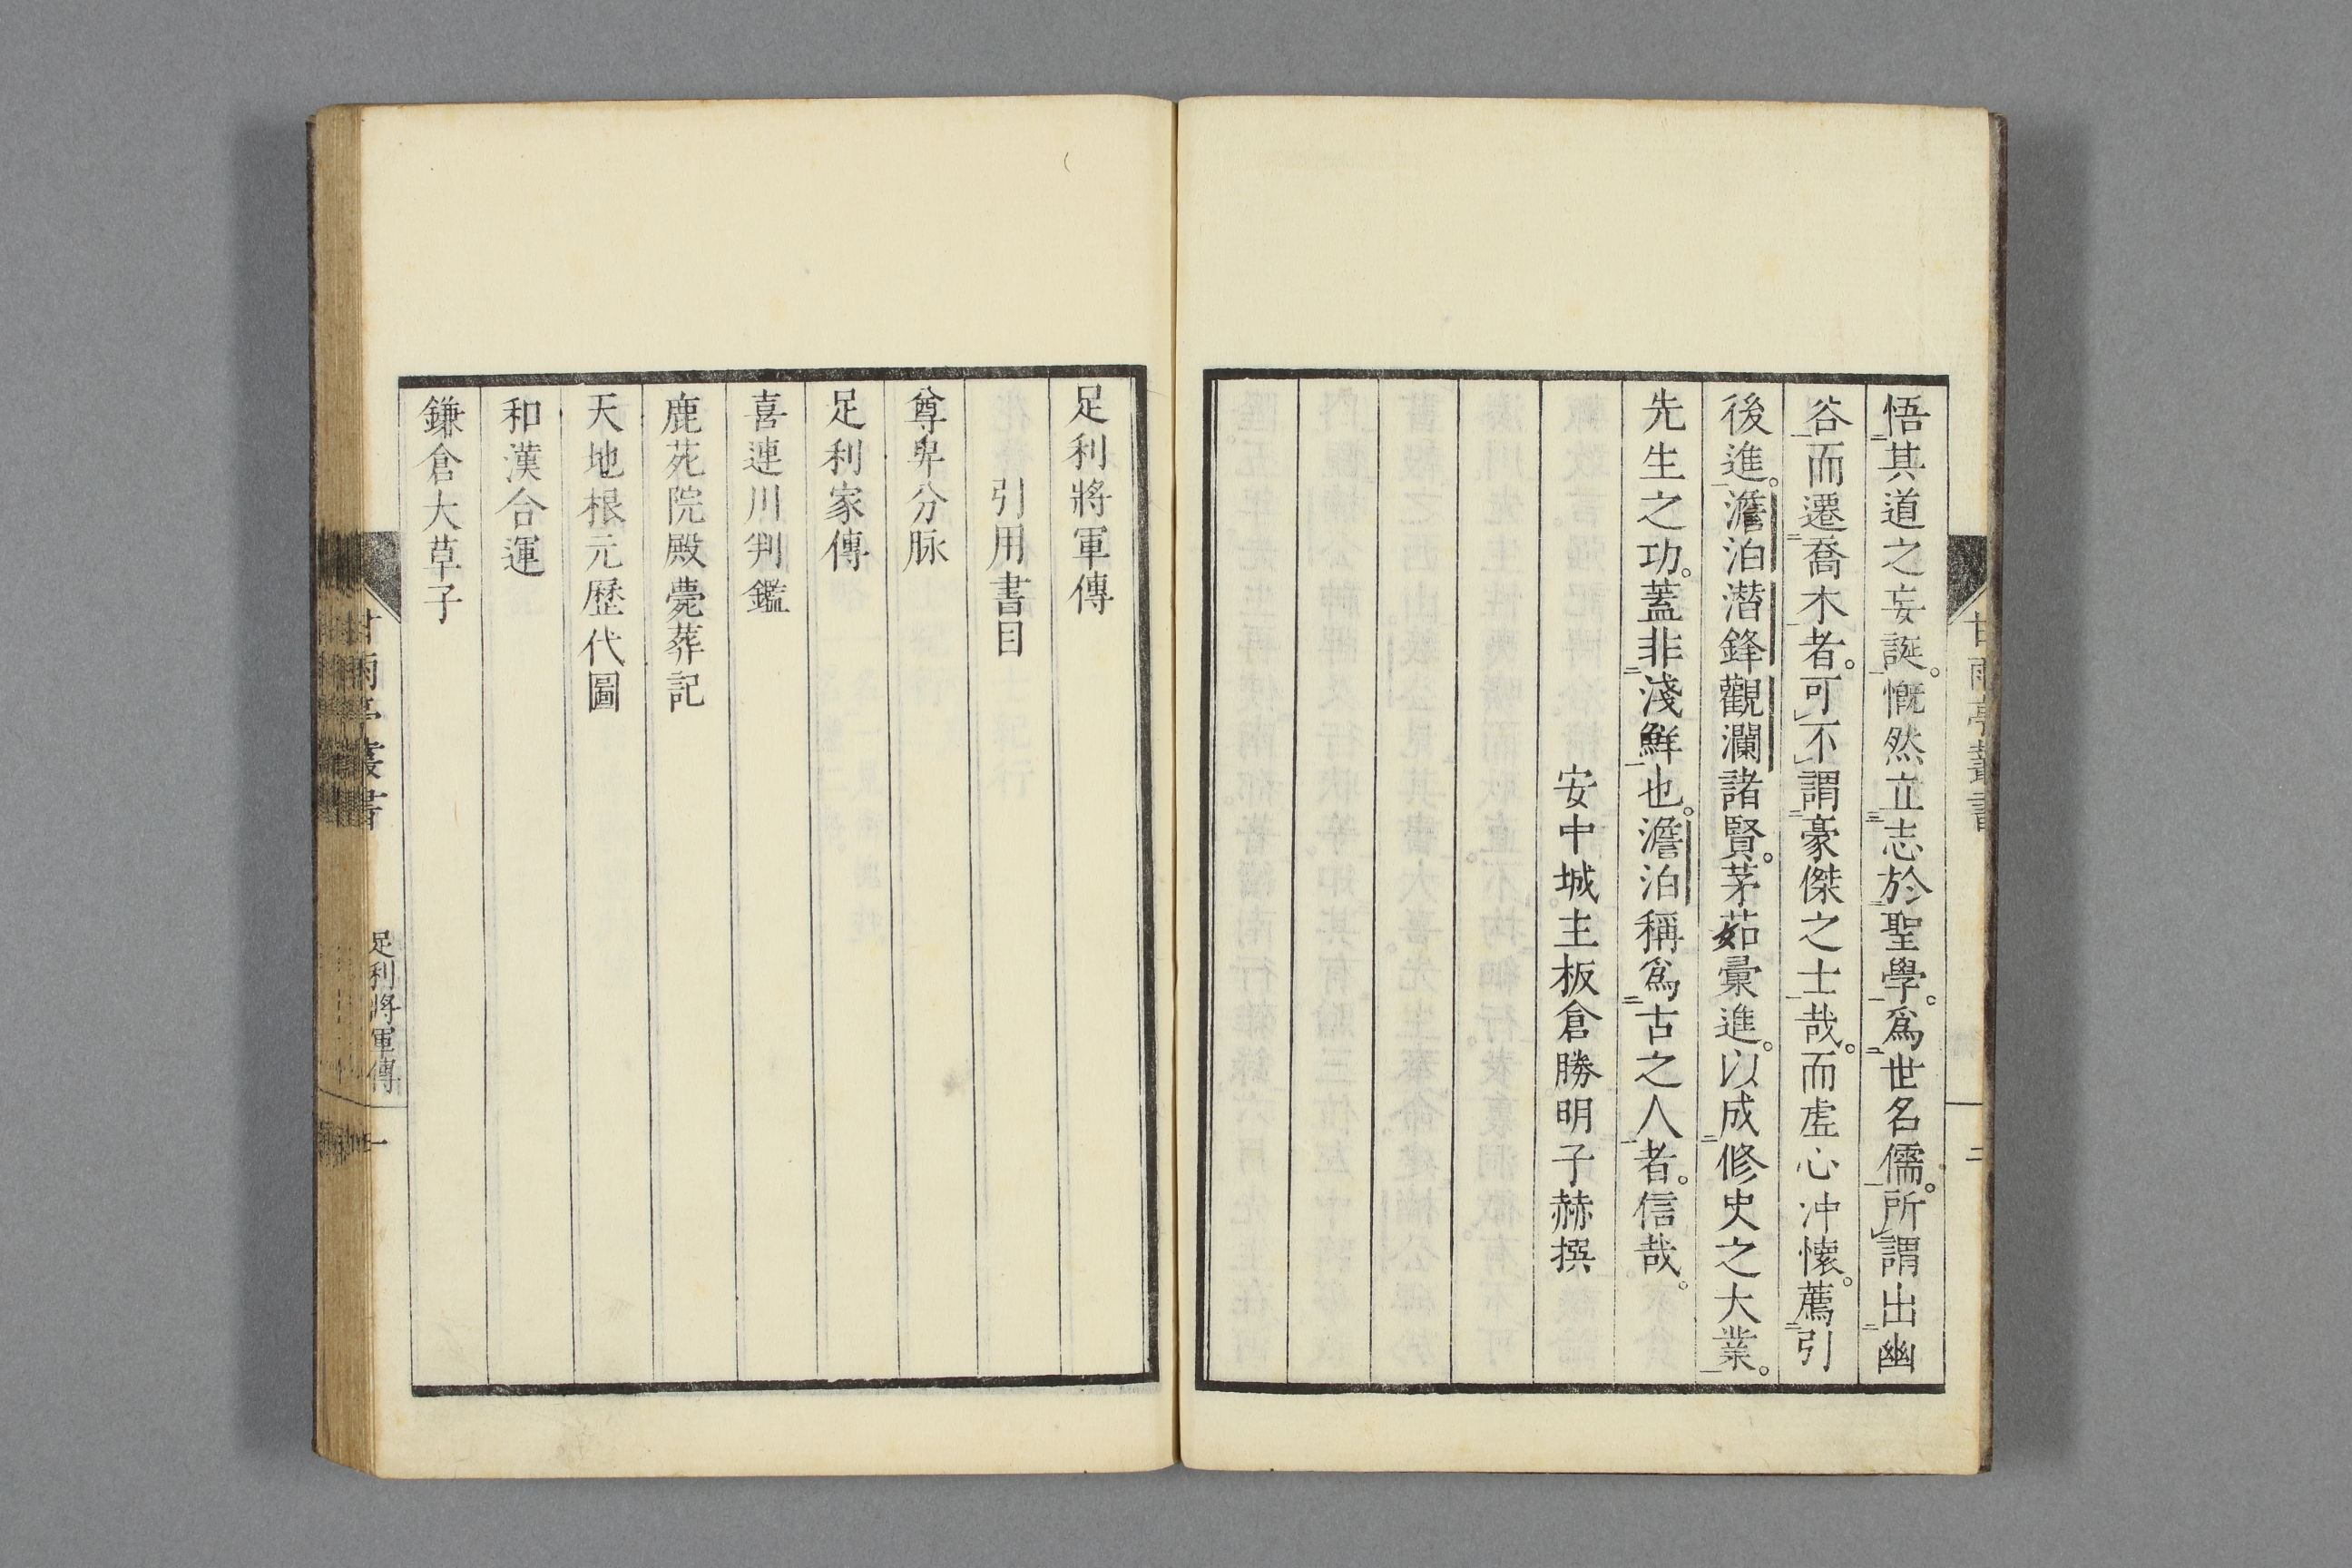 悟其道之妄誕。慨然立志於聖學。爲世名儒。所謂出幽
谷而遷喬木者。可不謂豪傑之士哉。而虛心冲懷。薦引
後進。澹泊潛鋒觀瀾諸賢。茅茹彙進。以成修史之大業。
先生之功。蓋非淺鮮也。澹泊稱爲古之人者。信哉。
安中城主板倉勝明子赫撰
甘雨亭叢書
二
足利將軍傳
引用書目
尊卑分脉
足利家傳
喜連川判鑑
鹿苑院殿薨葬記
天地根元歷代圖
和漢合運
鎌倉大草子
甘雨亭叢書
足利將軍傳
一